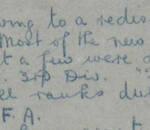 ving to a redis
Most of the new
t a few were o
3rd Div.
el ranks du
F. A.